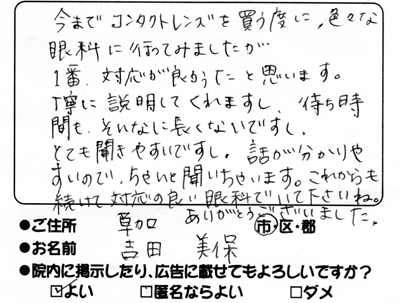 今までコンタクトレンズを買う度に、色々な
眼科に行ってみましたが
1番、対応が良かったと思います。
丁寧に説明してくれますし、待ち時
間も、そんなに長くないですし、
とても聞きやすいですし。話が分かりや
すいので、ちゃんと聞いちゃいます。これからも
続けて対応の良い眼科でいて下さいね。
ありがとうございました。
●ご住所 草加 市・区・郡
●お名前 吉田 美保
●院内に掲示したり、広告に載せてもよろしいですか?
☑よい □匿名ならよい □ダメ